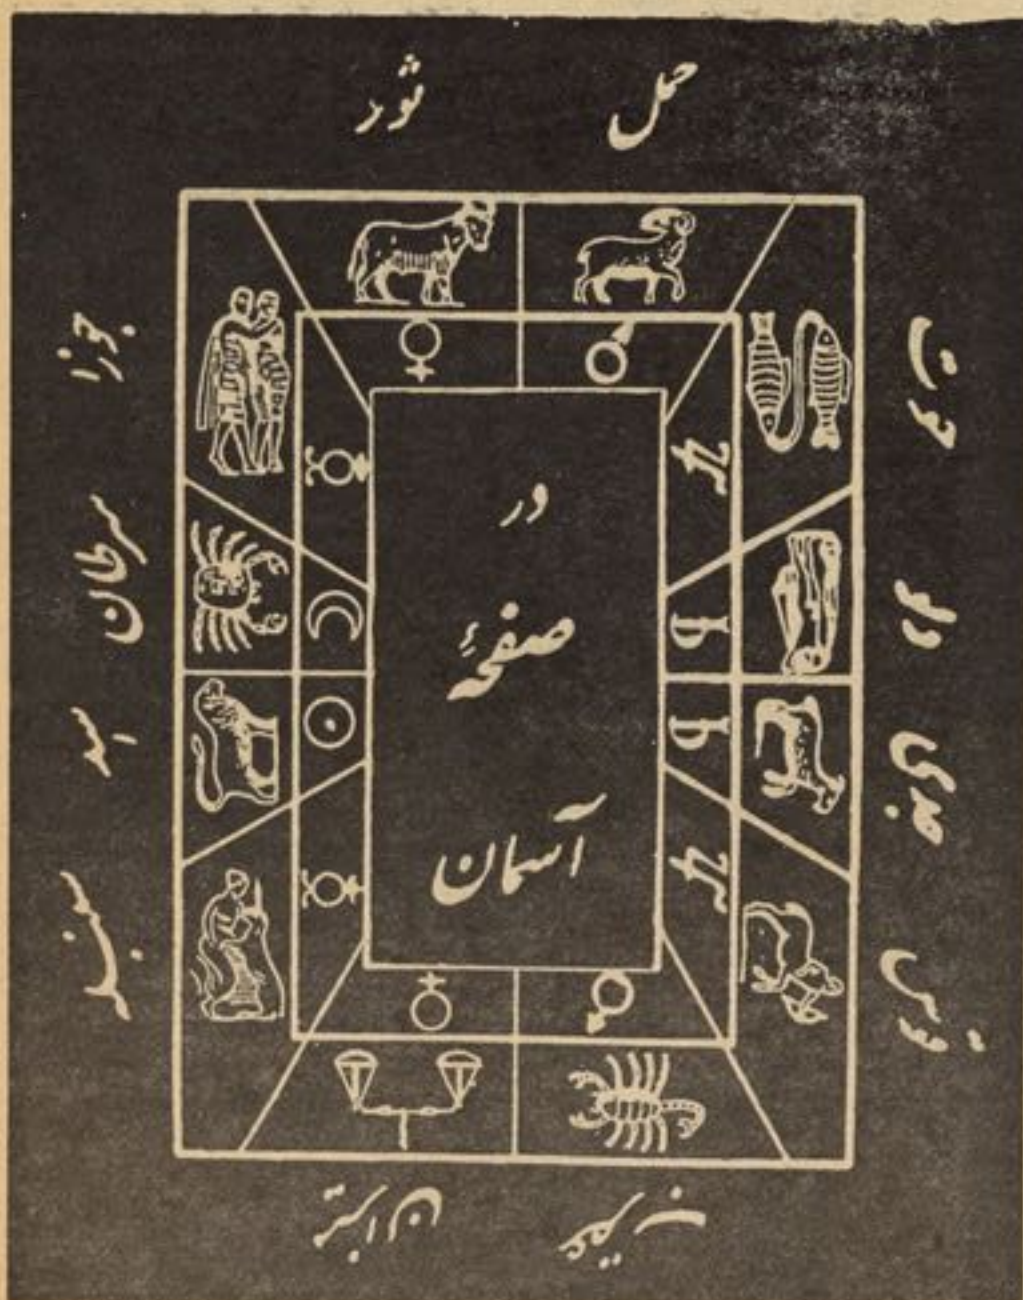 حمل
ثور
جوزا
سرطان
اسد
سنبله
قوس
جدی
دلو
حوت
در
صفحهٔ
آسمان